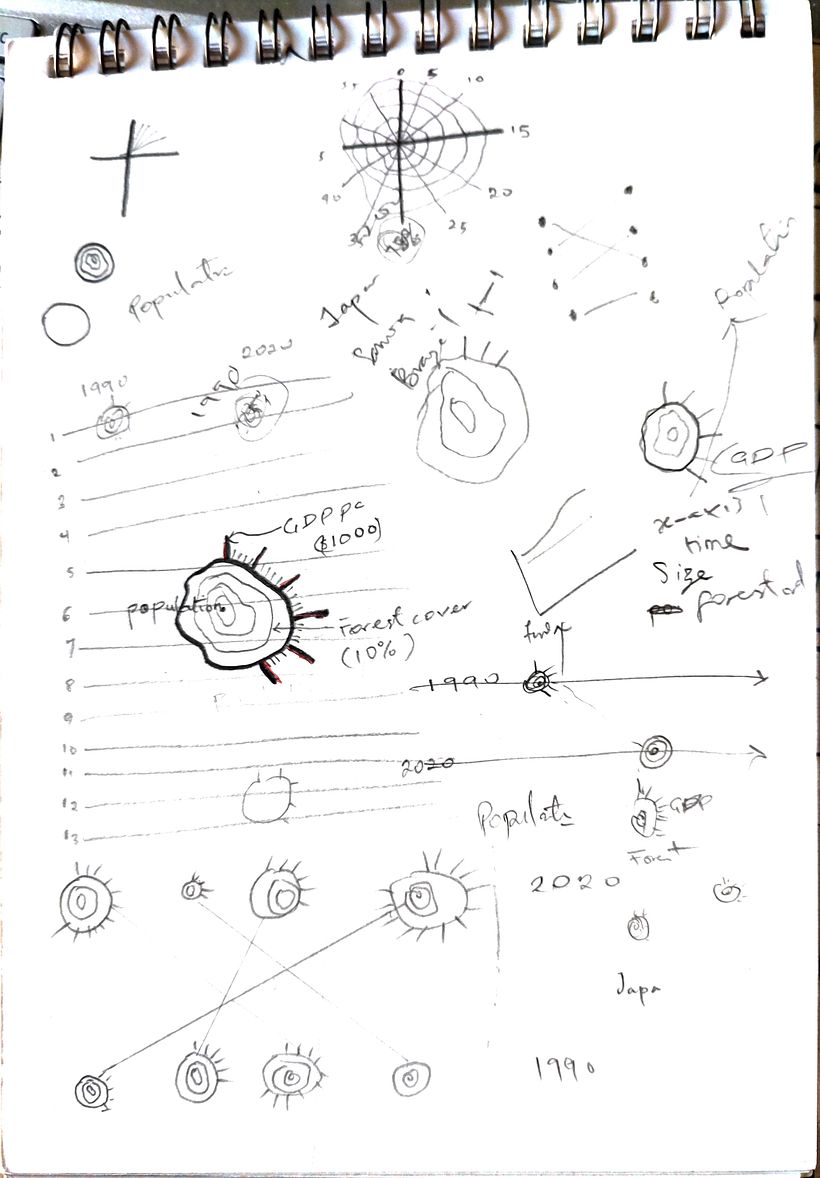 0 5 10
15
20
25
90
Populatn
Japan
Samoa
Brazil
Population
1990
1990
2020
GDP
1
2
3
4
5
6
7
8
9
10
11
12
13
GDP PC
($1000)
population
Forest cover
(10%)
x-axis |
time
Size
forest
1990
2020
Populatn
GDP
Forest
2020
Japa
1990